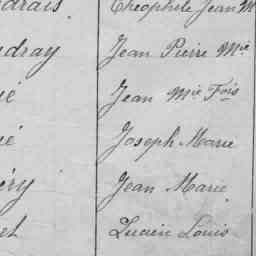 drais Théophile Jean M
dray Jean Pierre Mie
é Jean Mie Fois
é Joseph Marie
éry Jean Marie
et Lucien Louis